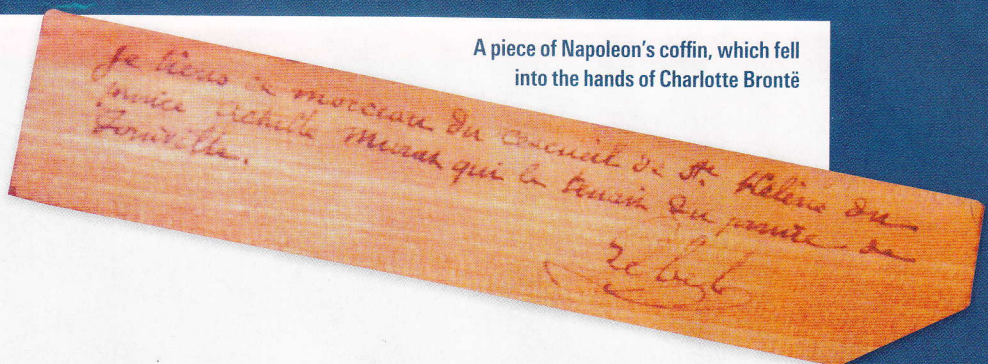 A piece of Napoleon's coffin, which fell
into the hands of Charlotte Brontë
Je tiens ce morceau du cercueil de Ste Hélène du
prince Achille Murat qui le tenait du prince de
Joinville.